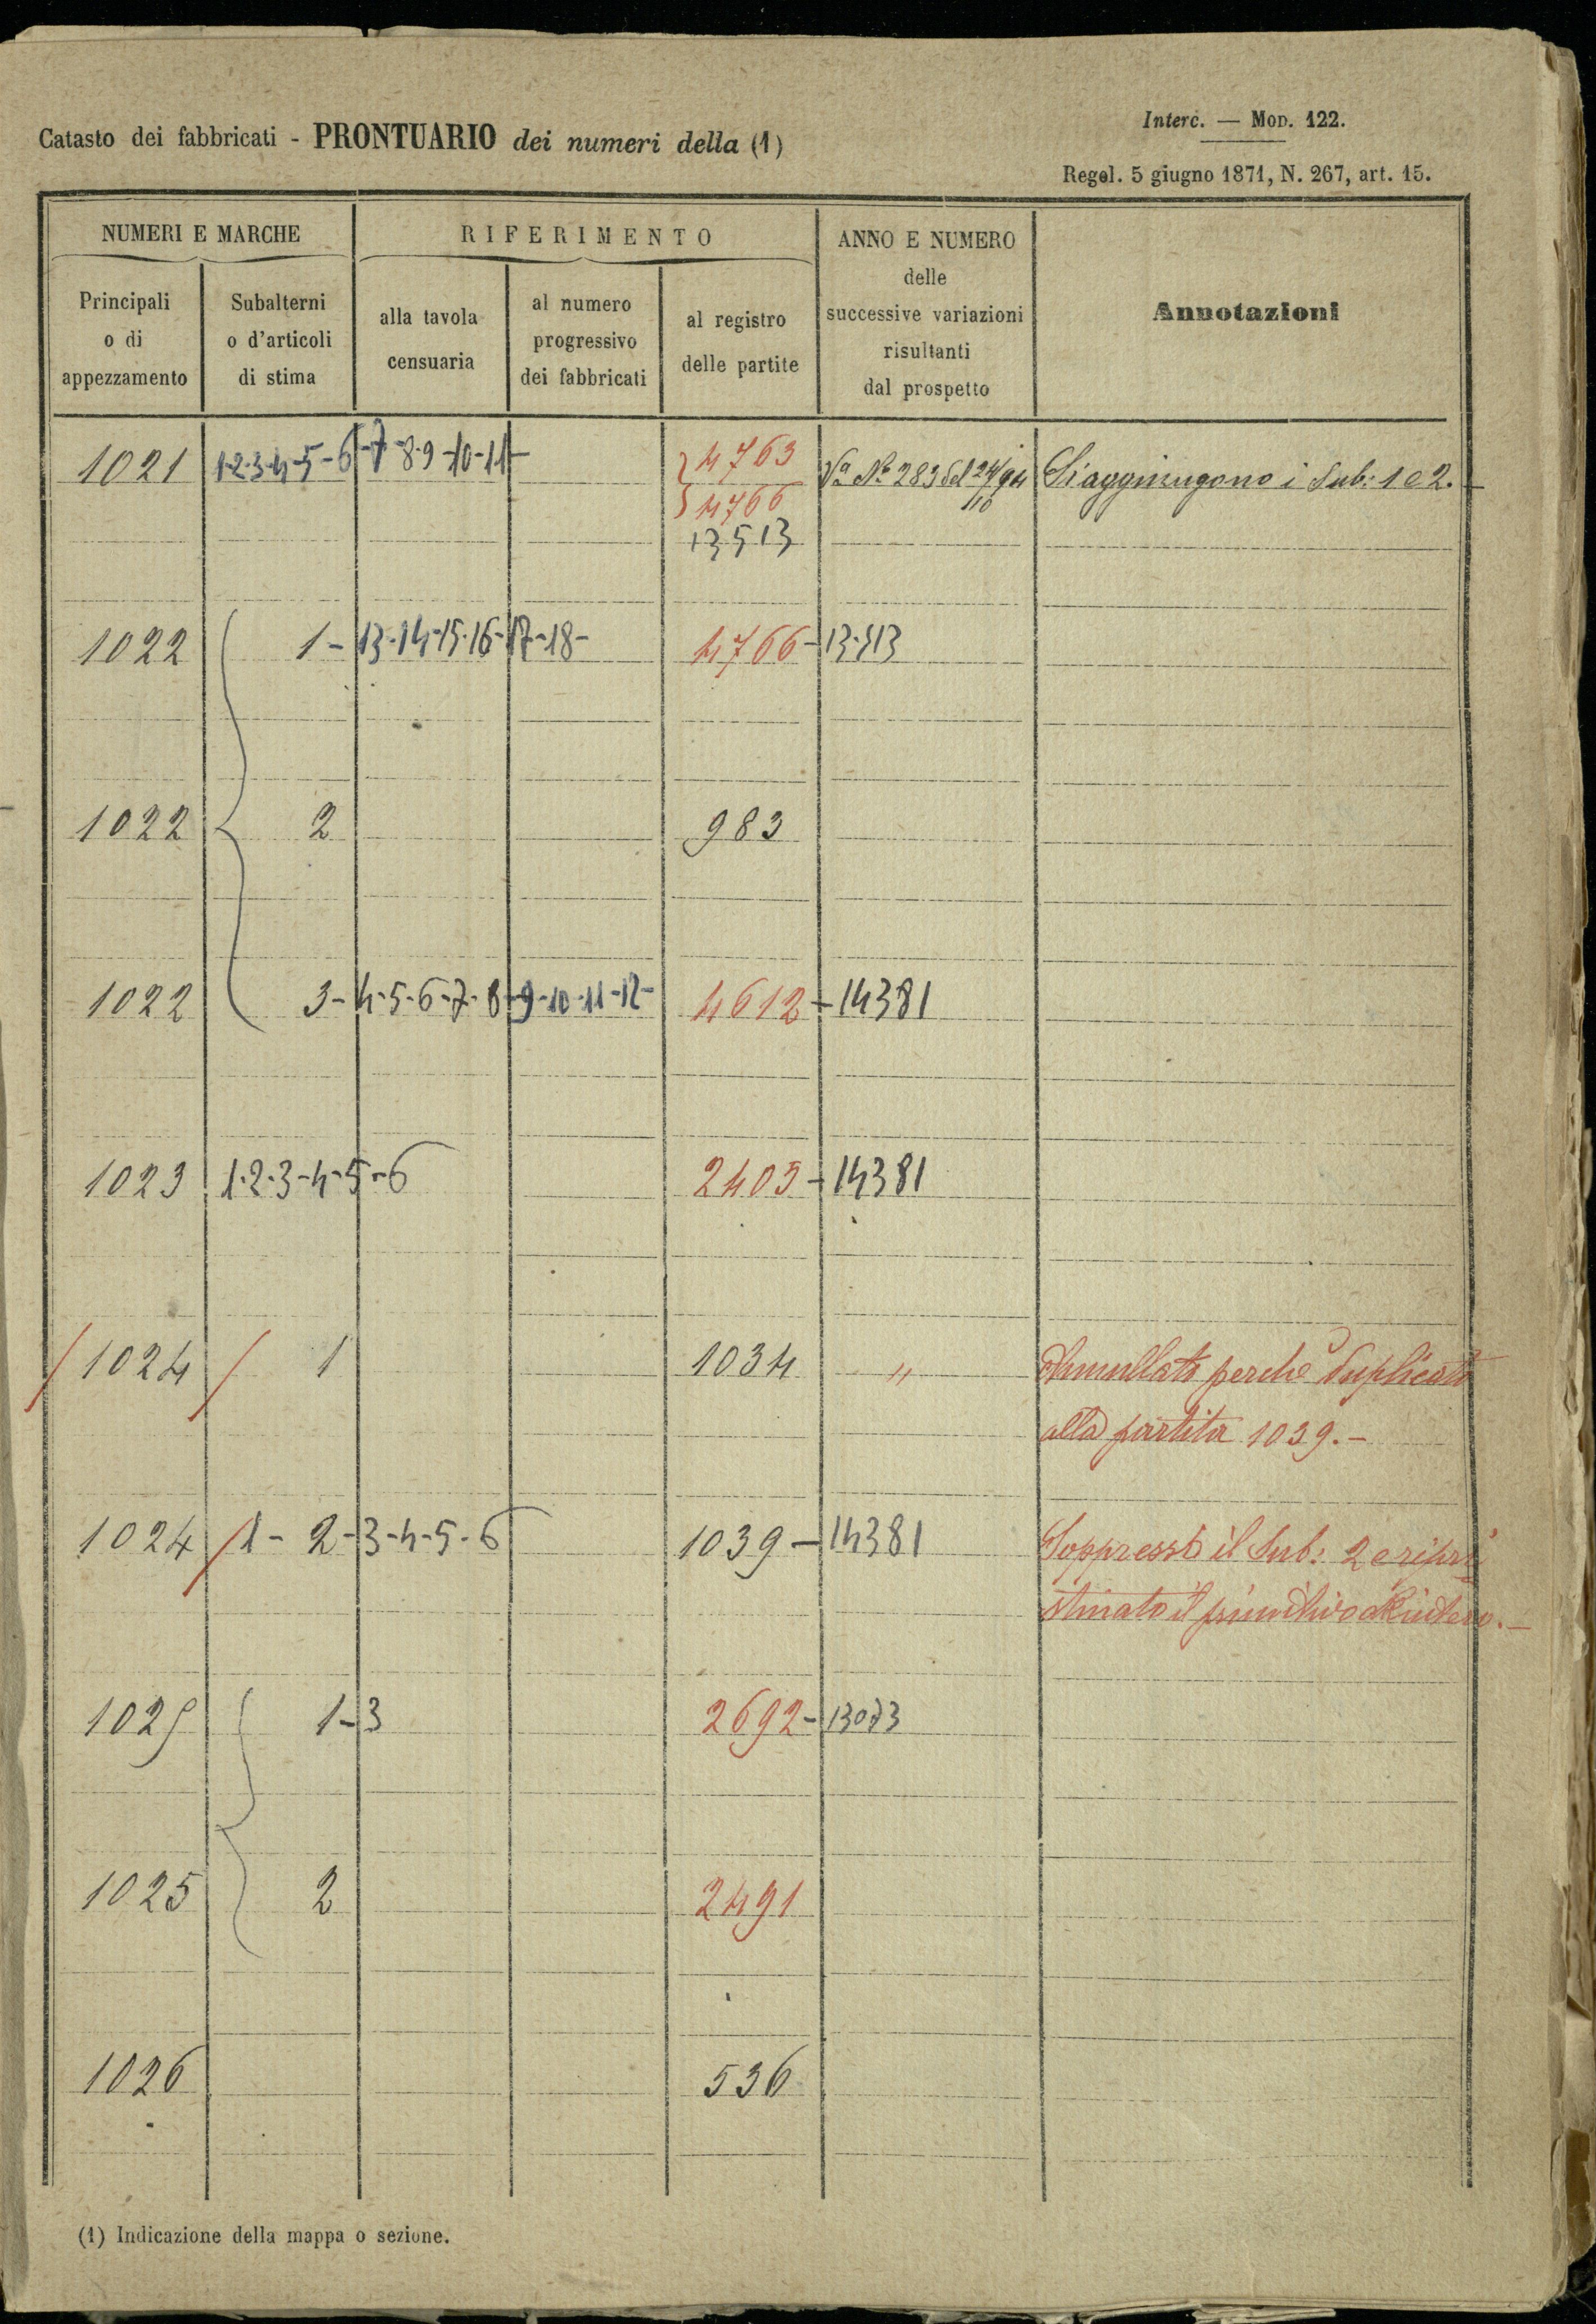 Catasto dei fabbricati - PRONTUARIO dei numeri della (1)
Interc. — Mod. 122.
Regol. 5 giugno 1871, N. 267, art. 15.
NUMERI E MARCHE
Principali o di appezzamento
Subalterni o d'articoli di stima
RIFERIMENTO
alla tavola censuaria
al numero progressivo dei fabbricati
al registro delle partite
ANNO E NUMERO delle successive variazioni risultanti dal prospetto
Annotazioni
1021 1-2-3-4-5-6-7-8-9-10-11- 4763 Va No 283 del 24/10 94 Si aggiungono i Sub: 1 e 2.-
4766
13513
1022 1-13-14-15-16-17-18- 4766-13513
1022 2 983
1022 3-4-5-6-7-8-9-10-11-12- 4612-14381
1023 1-2-3-4-5-6 2405-14381
/1024 / 1 1034 " Annullato perchè duplicato
alla partita 1039.-
1024 /1- 2-3-4-5-6 1039-14381 Soppresso il Sub: 2 e ripri
stinato il primitivo
1025 1-3 2692-13073
1025 2 2491
1026 536
(1) Indicazione della mappa o sezione.